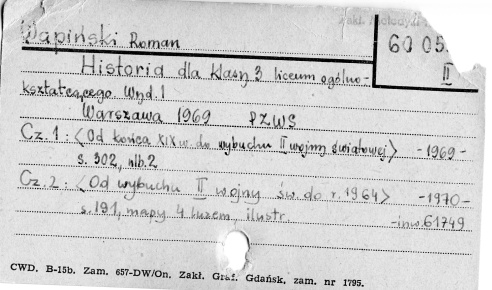 Wapiński Roman
60 05
II
Historia dla klasy 3 liceum ogólno-
kształcącego. Wyd. 1
Warszawa 1969 PZWS
Cz. 1: <Od końca XIX w. do wybuchu II wojny światowej> -1969-
s. 302, nlb. 2
Cz. 2: <Od wybuchu II wojny św. do r. 1964> -1970-
s. 191, mapy 4 luzem, ilustr. -inw. 61749
CWD. B-15b. Zam. 657-DW/On. Zakł. Graf. Gdańsk, zam. nr 1795.